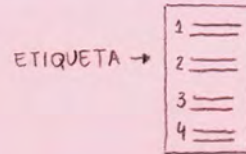 ETIQUETA →
1
2
3
4